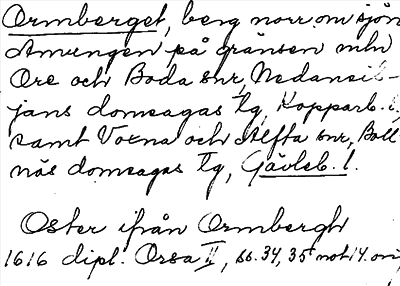 Ormberget, berg norr om sjön
Amungen på gränsen mln
Ore och Boda snr, Nedansil-
jans domsagas tlg, Kopparb. l,
samt Voxna och Alfta snr, Boll
näs domsagas tlg, Gävleb. l.
Öster ifrån Ormbergh
1616 dipl. Orsa II, ss. 34, 35 not 14.